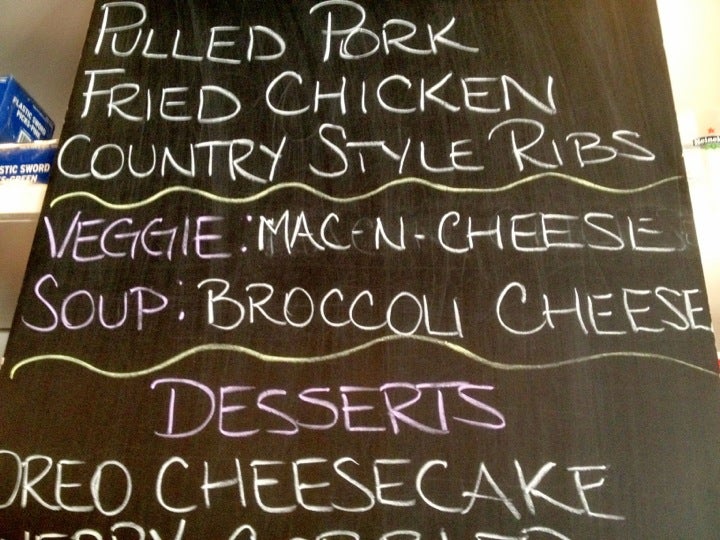 PULLED PORK
FRIED CHICKEN
COUNTRY STYLE RIBS
VEGGIE: MAC-N-CHEESE
SOUP: BROCCOLI CHEESE
DESSERTS
OREO CHEESECAKE
PLASTIC SWORD
PICKS-
STIC SWORD
Heinek